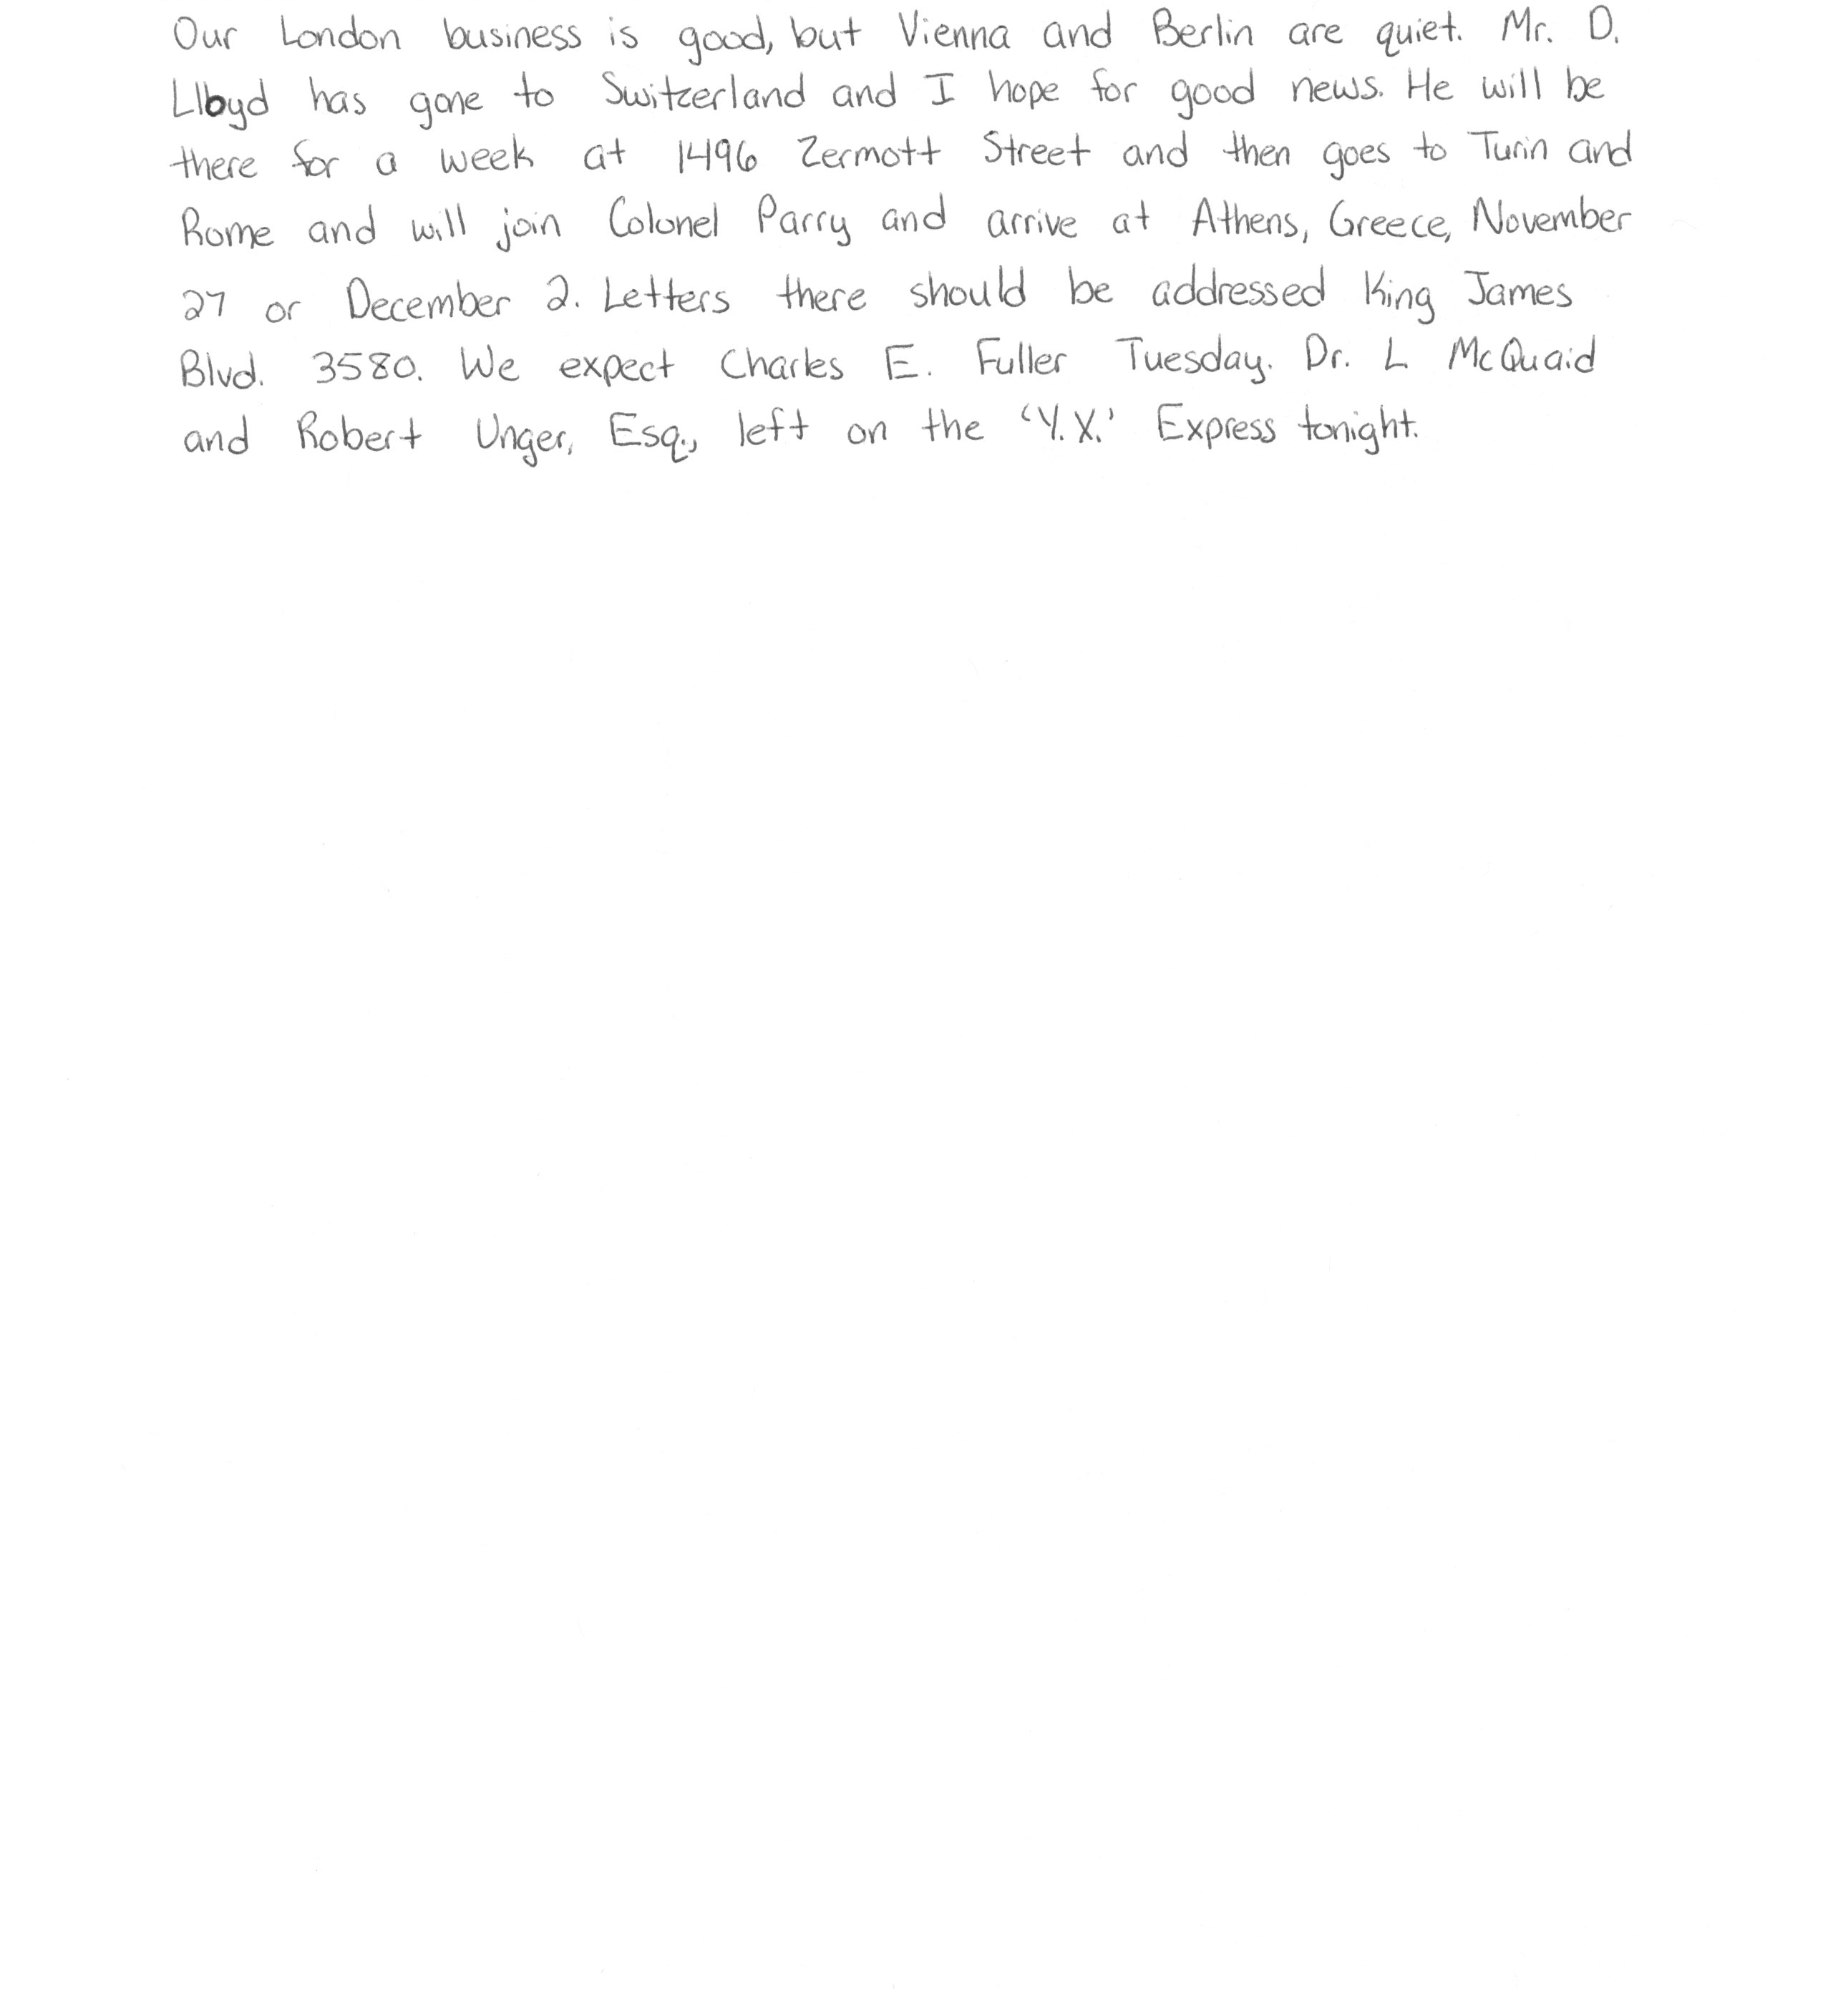 Our London business is good, but Vienna and Berlin are quiet. Mr. D.
Lloyd has gone to Switzerland and I hope for good news. He will be
there for a week at 1496 Zermott Street and then goes to Turin and
Rome and will join Colonel Parry and arrive at Athens, Greece, November
27 or December 2. Letters there should be addressed King James
Blvd. 3580. We expect Charles E. Fuller Tuesday. Dr. L McQuaid
and Robert Unger, Esq., left on the 'Y.X.' Express tonight.